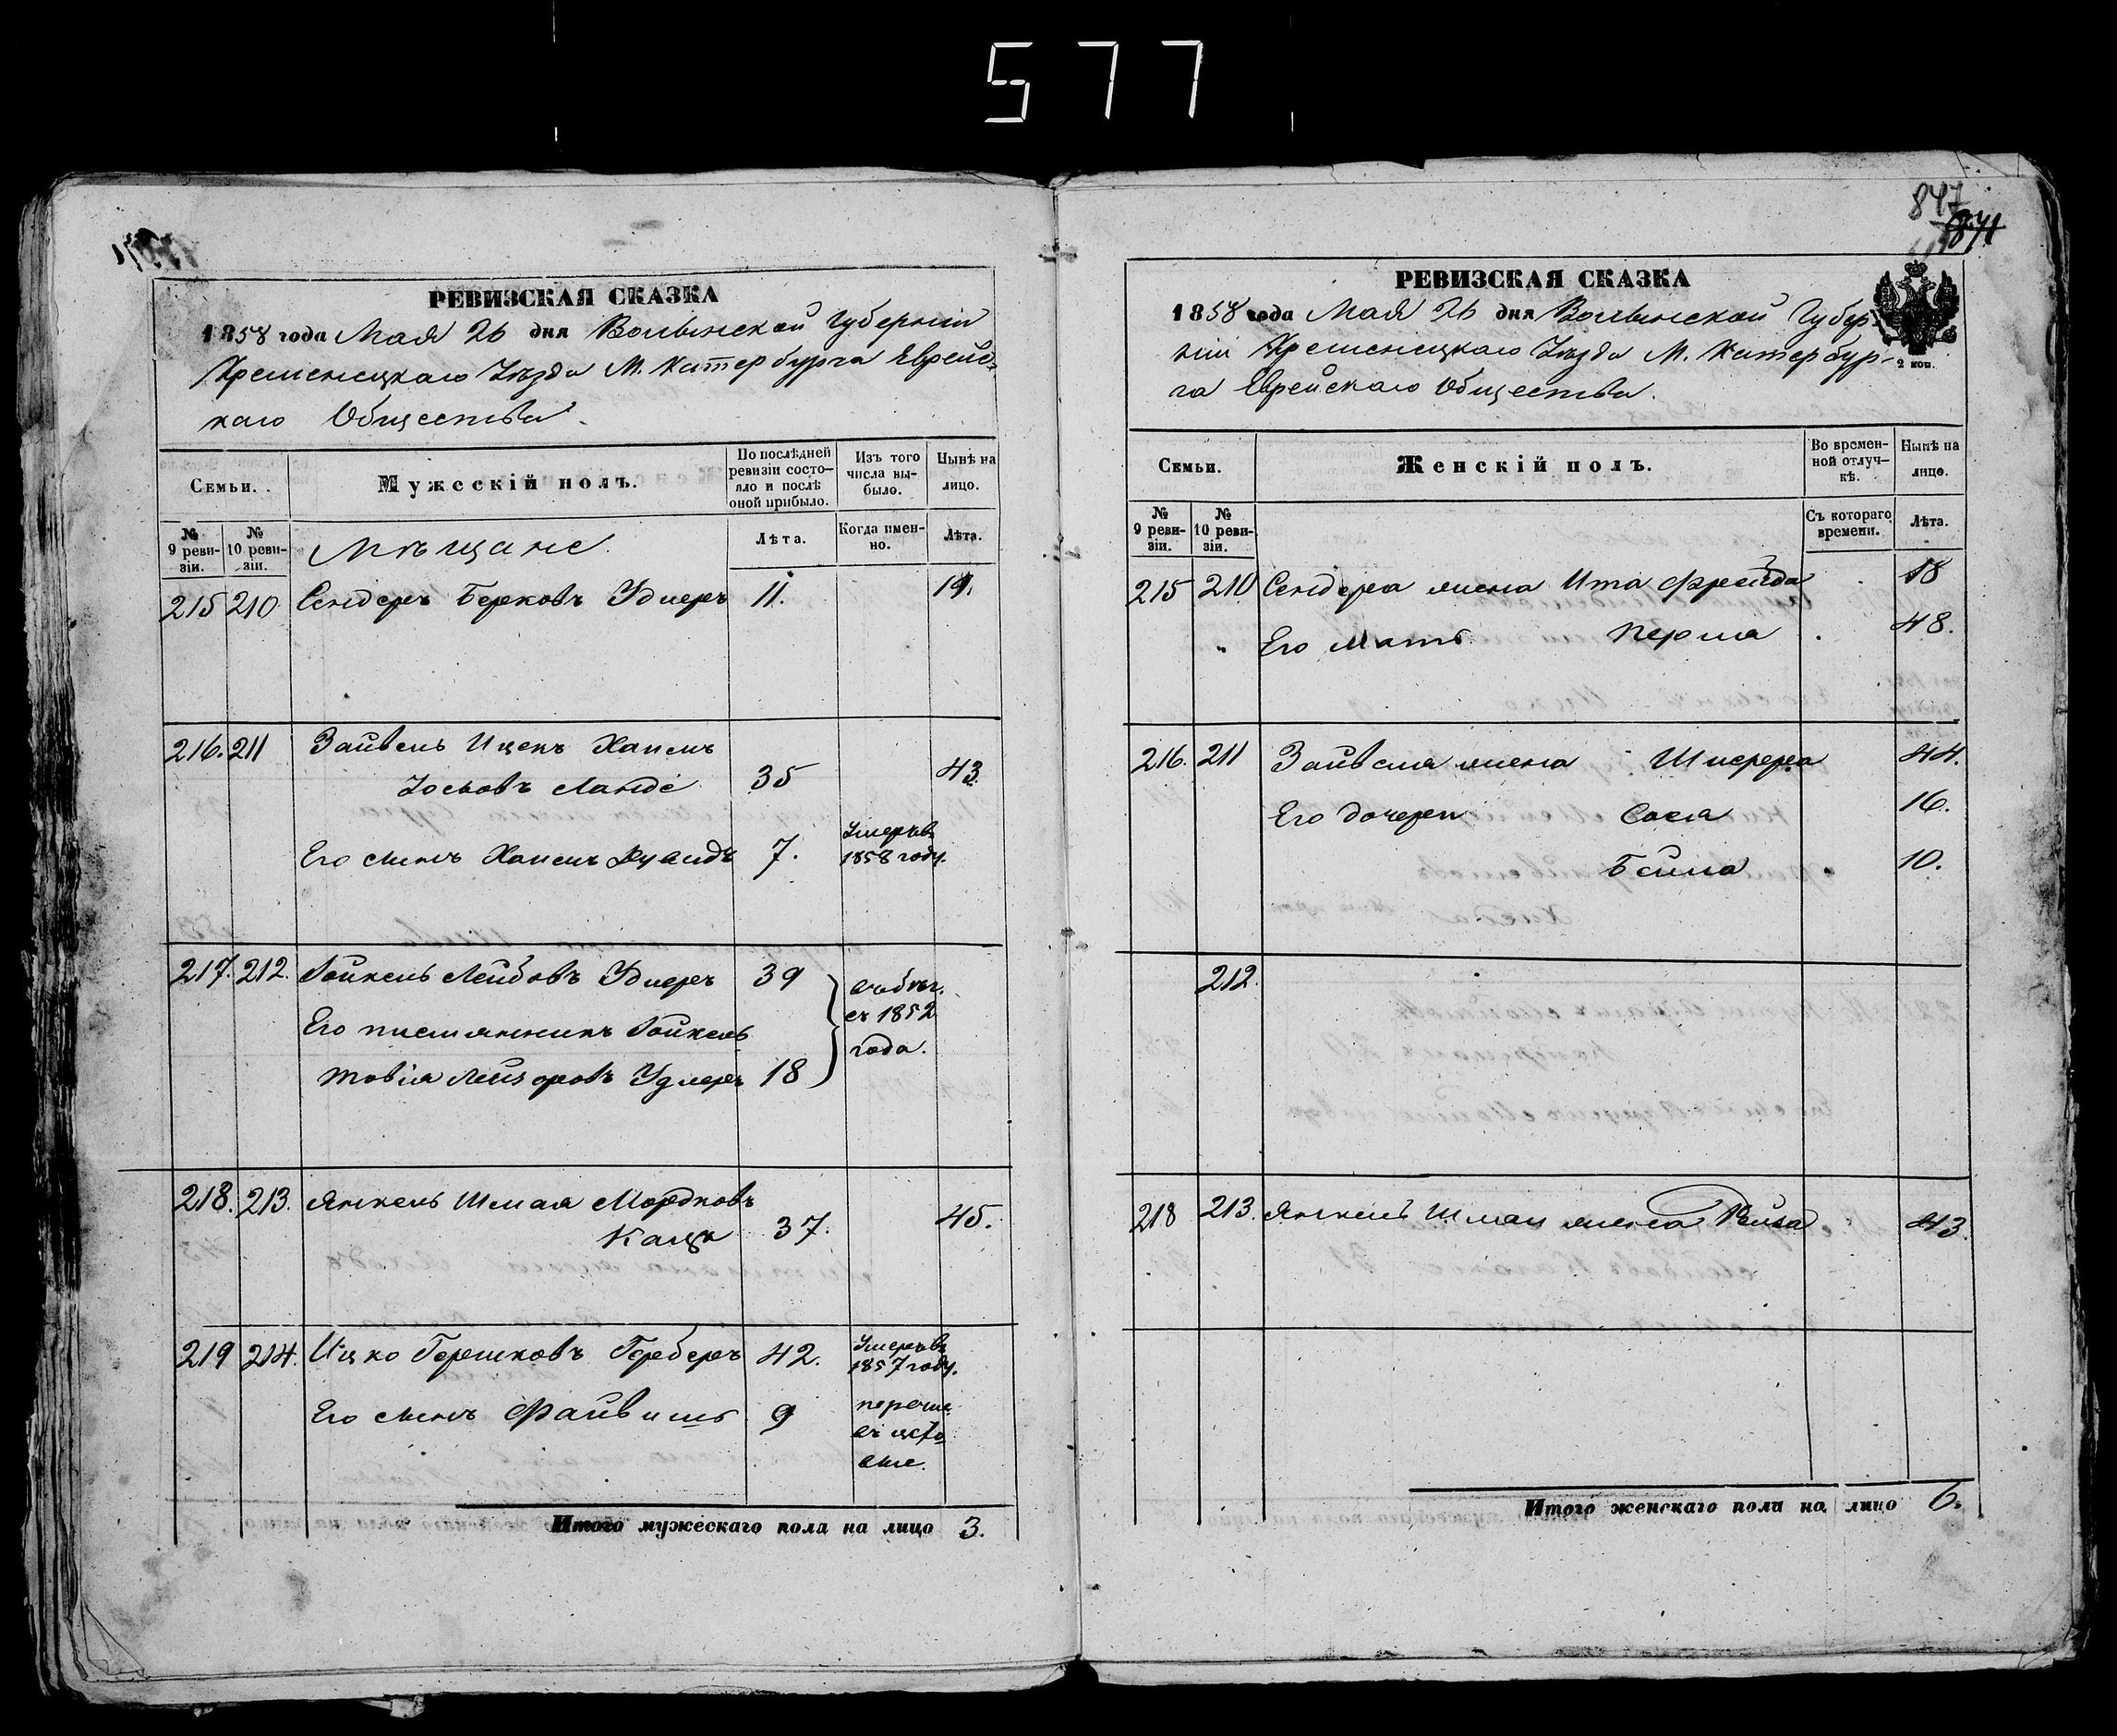 577
РЕВИЗСКАЯ СКАЗКА
1858 года Мая 26 дня Волынской Губерніи
Кременецкаго Уѣзда М. Катербурга Еврейс-
каго Общества.
Семьи.
Мужескій полъ.
По послѣдней ревизіи состояло и послѣ оной прибыло.
Изъ того числа выбыло.
Нынѣ на лицо.
№ 9 ревизіи.
№ 10 ревизіи.
Мѣщане.
Лѣта.
Когда именно.
Лѣта.
215 210 Сендеръ Берковъ Удлеръ 11. 19.
216. 211 Зайвель Ицекъ Хаимъ
Іосьовъ Ланде 35 43.
Его сынъ Хаимъ Дувидъ 7. Умеръ въ
1858 году.
217. 212. Гойхель Лейбовъ Удлеръ 39
въ бѣг.
съ 1852
года.
Его племянникъ Гойхель
Товія Лейзоровъ Удлеръ 18
218. 213. Янкель Шмая Мордковъ
Кацъ 37. 45.
219 214. Ицко Гершковъ Герберъ 42. Умеръ въ
1857 году.
Его сынъ Файвишъ 9
Итого мужескаго пола на лицо 3.
847
871
РЕВИЗСКАЯ СКАЗКА
1858 года Мая 26 дня Волынской Губер-
ніи Кременецкаго Уѣзда М. Катербур-
га Еврейскаго Общества.
2 коп.
Семьи.
Женскій полъ.
Во временной отлучкѣ.
Нынѣ на лицо.
№ 9 ревизіи.
№ 10 ревизіи.
Съ котораго времени.
Лѣта.
215 210 Сендера жена Ита Фрейда 18
" Его мать Перла 48.
216. 211 Зайвеля жена Шпренца 44.
Его дочери Сося 16.
Бейла 10.
212.
218 213. Янкель Шмаи жена Рейза 43.
Итого женскаго пола на лицо 6.